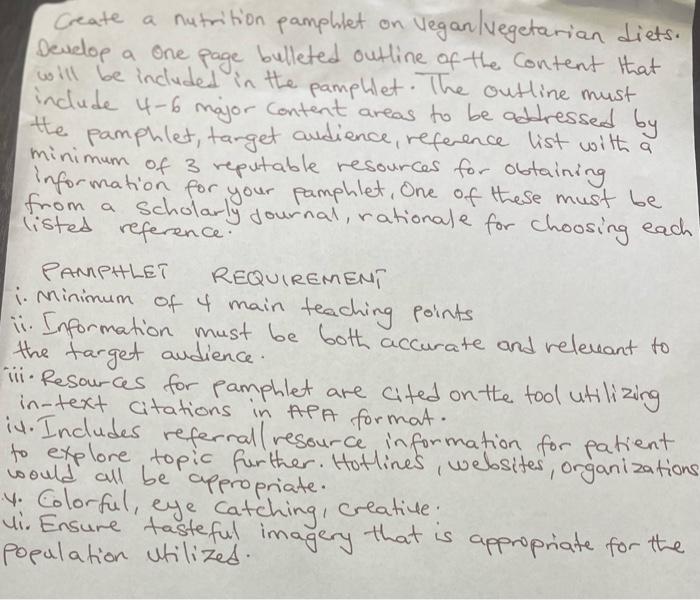 Create a nutrition pamphlet on vegan/vegetarian diets.
Develop a one page bulleted outline of the content that
will be included in the pamphlet. The outline must
include 4-6 major content areas to be addressed by
the pamphlet, target audience, reference list with a
minimum of 3 reputable resources for obtaining
information for your pamphlet, One of these must be
from a scholarly journal, rationale for choosing each
listed reference.
PAMPHLET REQUIREMENT
i. Minimum of 4 main teaching points
ii. Information must be both accurate and relevant to
the target audience.
iii. Resources for pamphlet are cited on the tool utilizing
in-text citations in APA format.
iv. Includes referral/resource information for patient
to explore topic further. Hotlines, websites, organizations
would all be appropriate.
v. Colorful, eye catching, creative.
vi. Ensure tasteful imagery that is appropriate for the
population utilized.